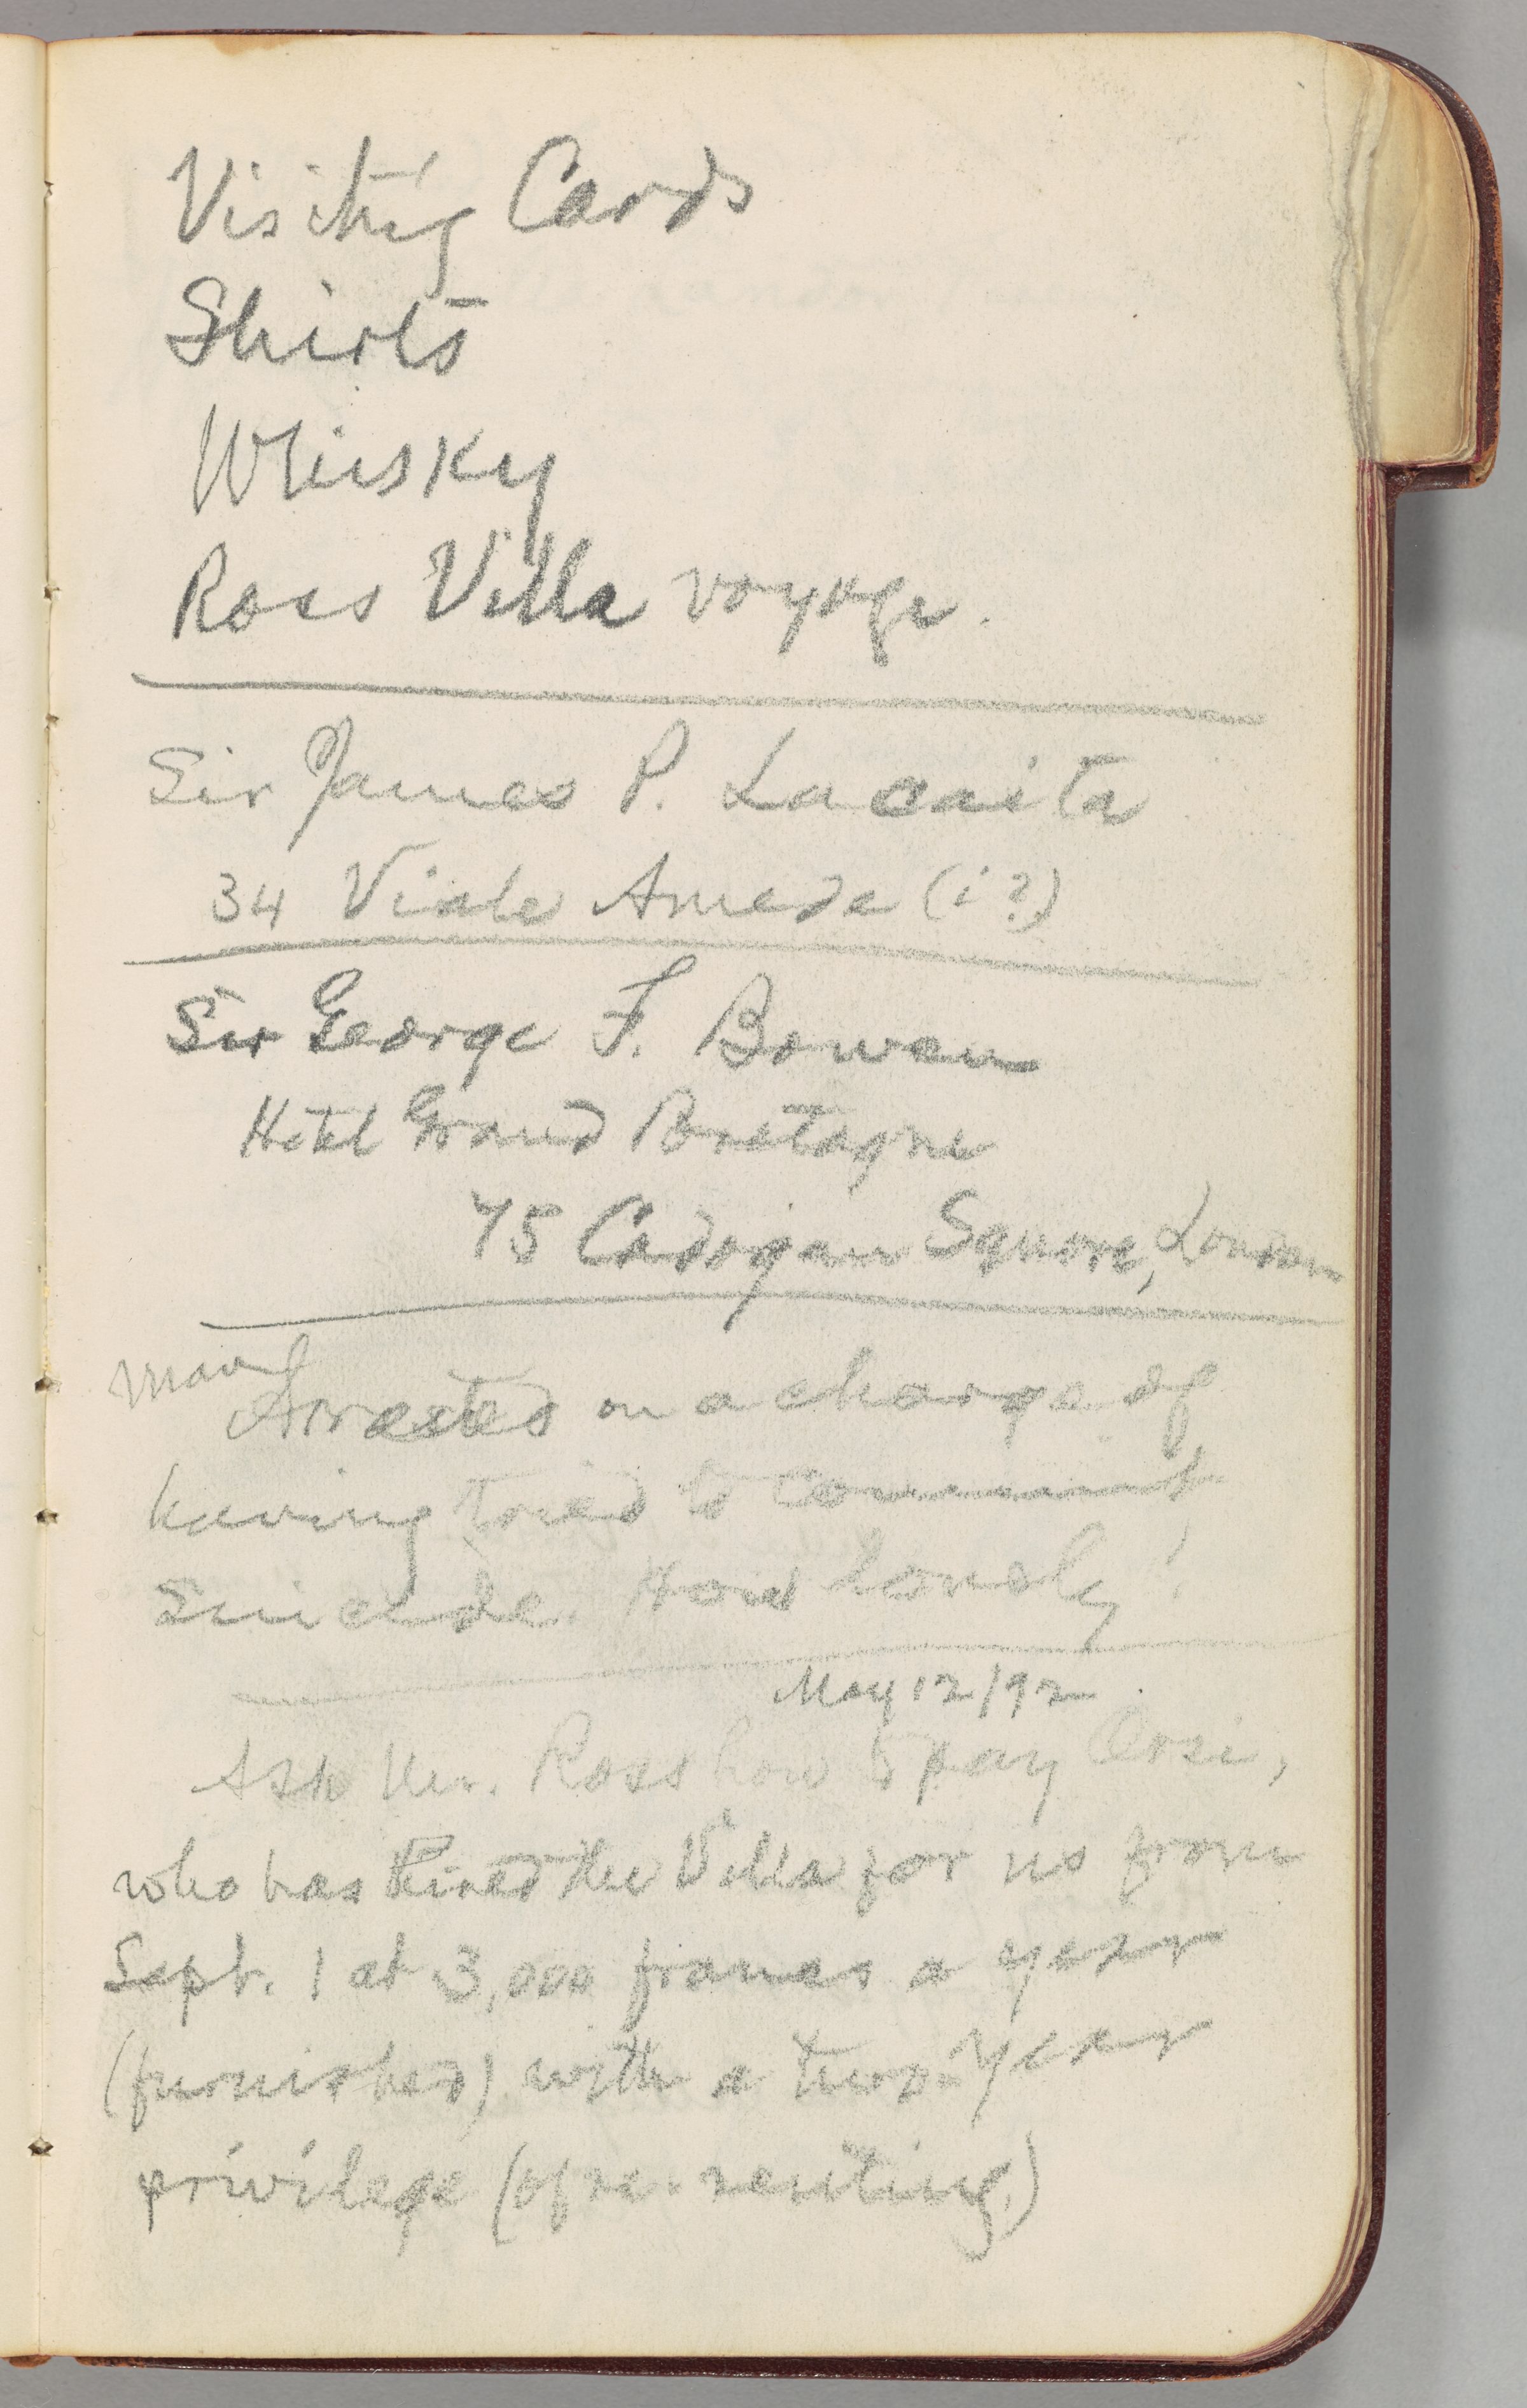 Visiting Cards
Shirts
Whisky
Ross Villa voyage.
Sir James P. Lacaita
34 Viale Amedeo (i?)
Sir George F. Bowen
Hotel Grand Bretagne
75 Cadogan Square, London
Man
Arrested on a charge of
having tried to commit
Suicide. How lovely!
May 12/92
Ask Mr. Ross how to pay Orsi,
who has hired the Villa for us from
Sept. 1 at 3,000 francs a year
(furnished) with a two-year
privilege (of re-renting)